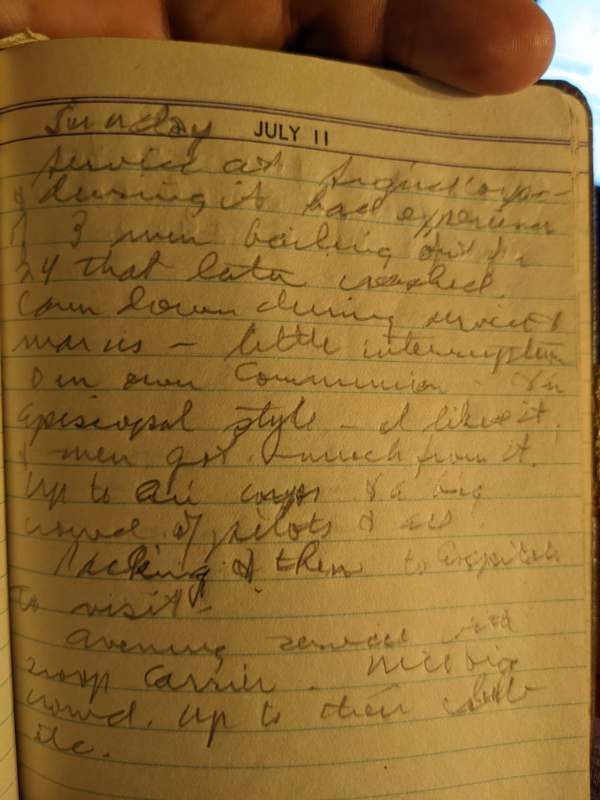 Sunday JULY 11
service at
& during it had experience
3 men bailing out
24 that later crashed.
Came down during service &
little interruption
own Communion
Episcopal style - I like it,
& men got much from it.
Up to air corps & a big
crowd of pilots &
of them to hospital
To visit -
evening service with
troop carrier. Nice big
crowd. Up to their club
etc.